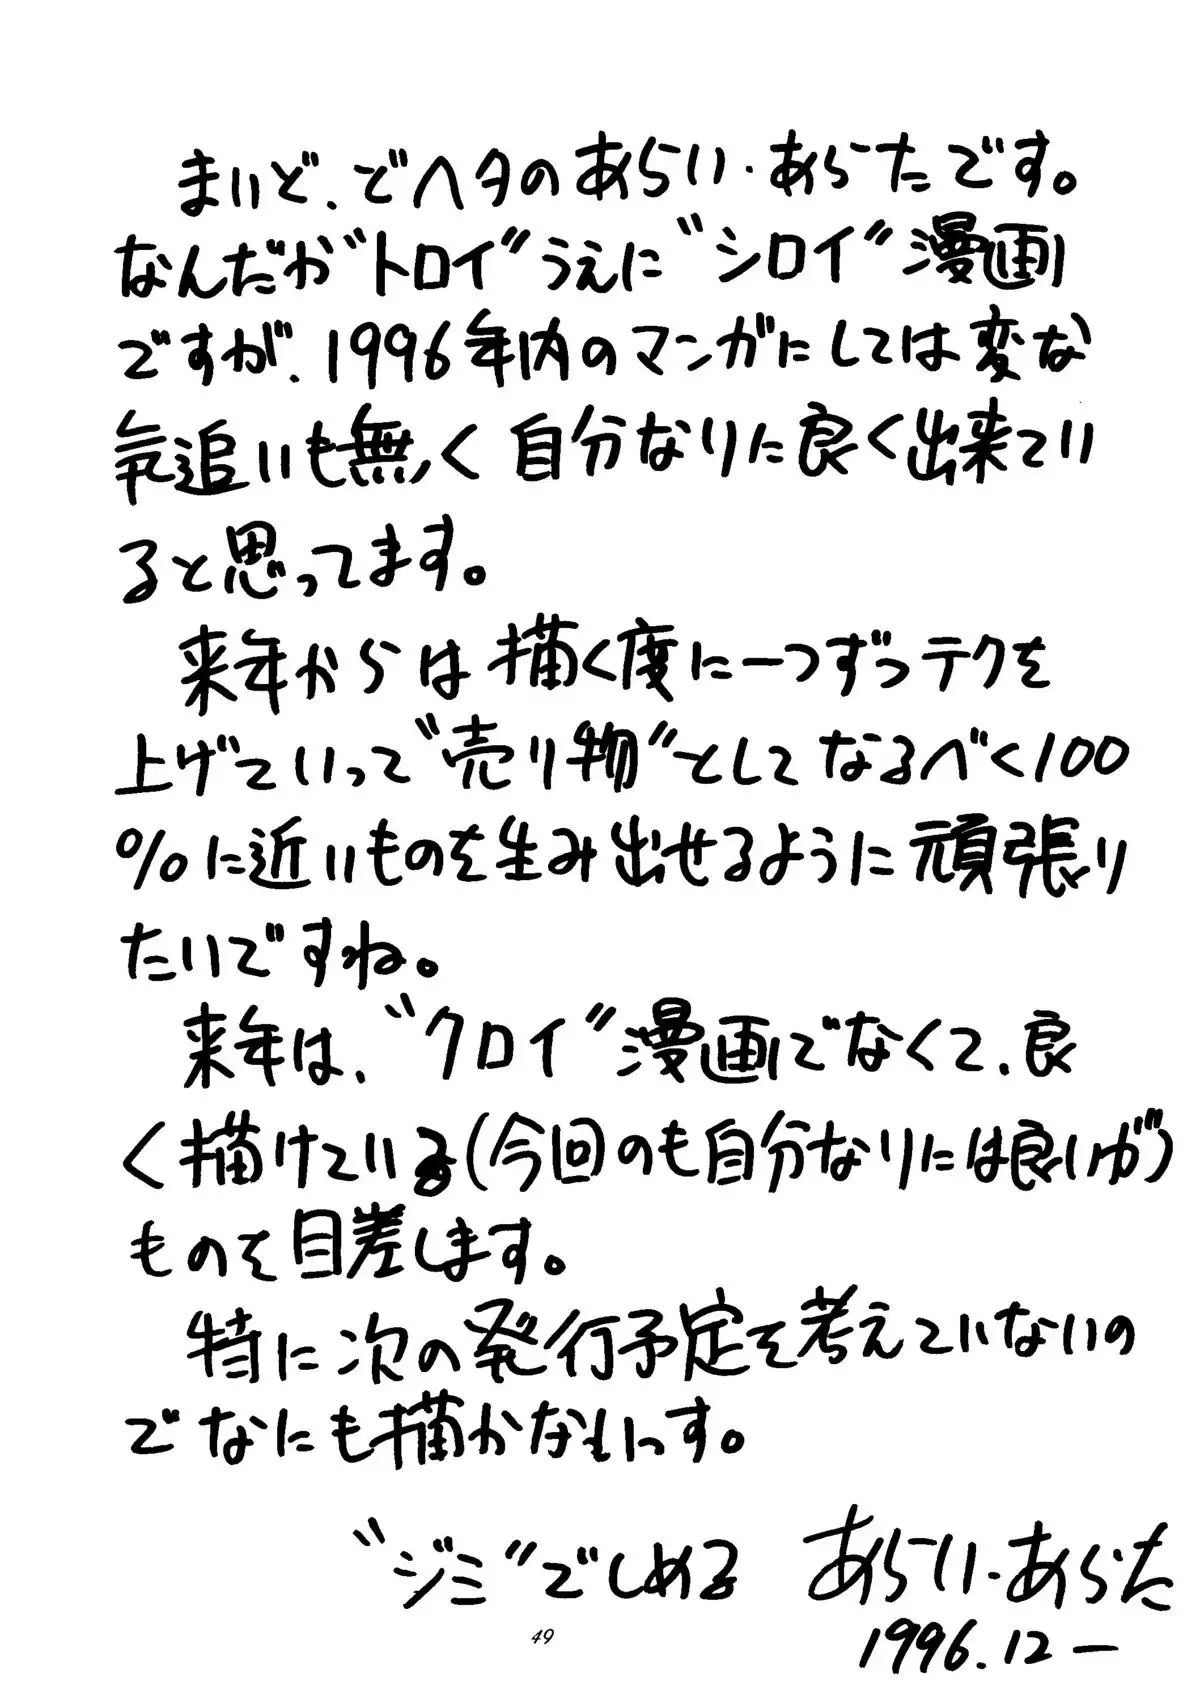 まいど、でヘタのあらい・あらたです。
なんだか“トロイ”うえに“シロイ”漫画
ですが、1996年内のマンガにしては変な
気追いも無く自分なりに良く出来てい
ると思ってます。
来年からは描く度に一つずつテクを
上げていって“売り物”としてなるべく100
%に近いものを生み出せるように頑張り
たいですね。
来年は、“クロイ”漫画でなくて、良
く描けている(今回のも自分なりには良いが)
ものを目差します。
特に次の発行予定を考えていないの
でなにも描かないっす。
“ジミ”でしめる あらい・あらた
1996.12ー
49